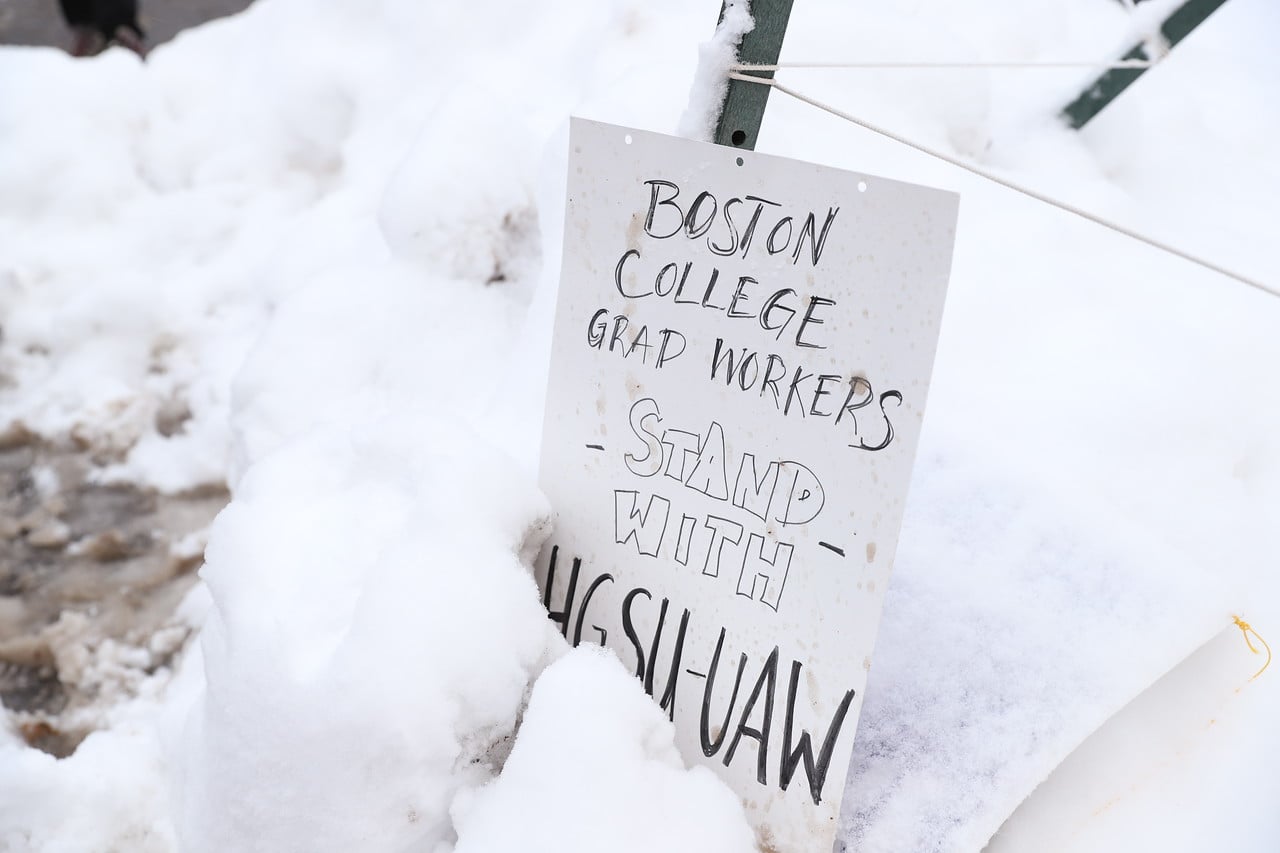 BOSTON
COLLEGE
GRAD WORKERS
- STAND
WITH -
HGSU-UAW